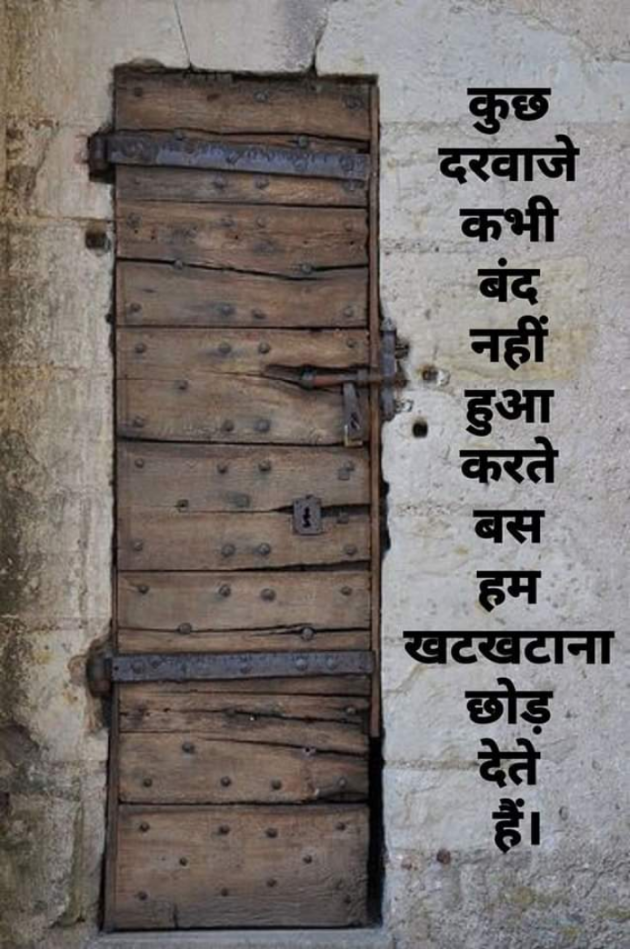 कुछ
दरवाजे
कभी
बंद
नहीं
हुआ
करते
बस
हम
खटखटाना
छोड़
देते
हैं।